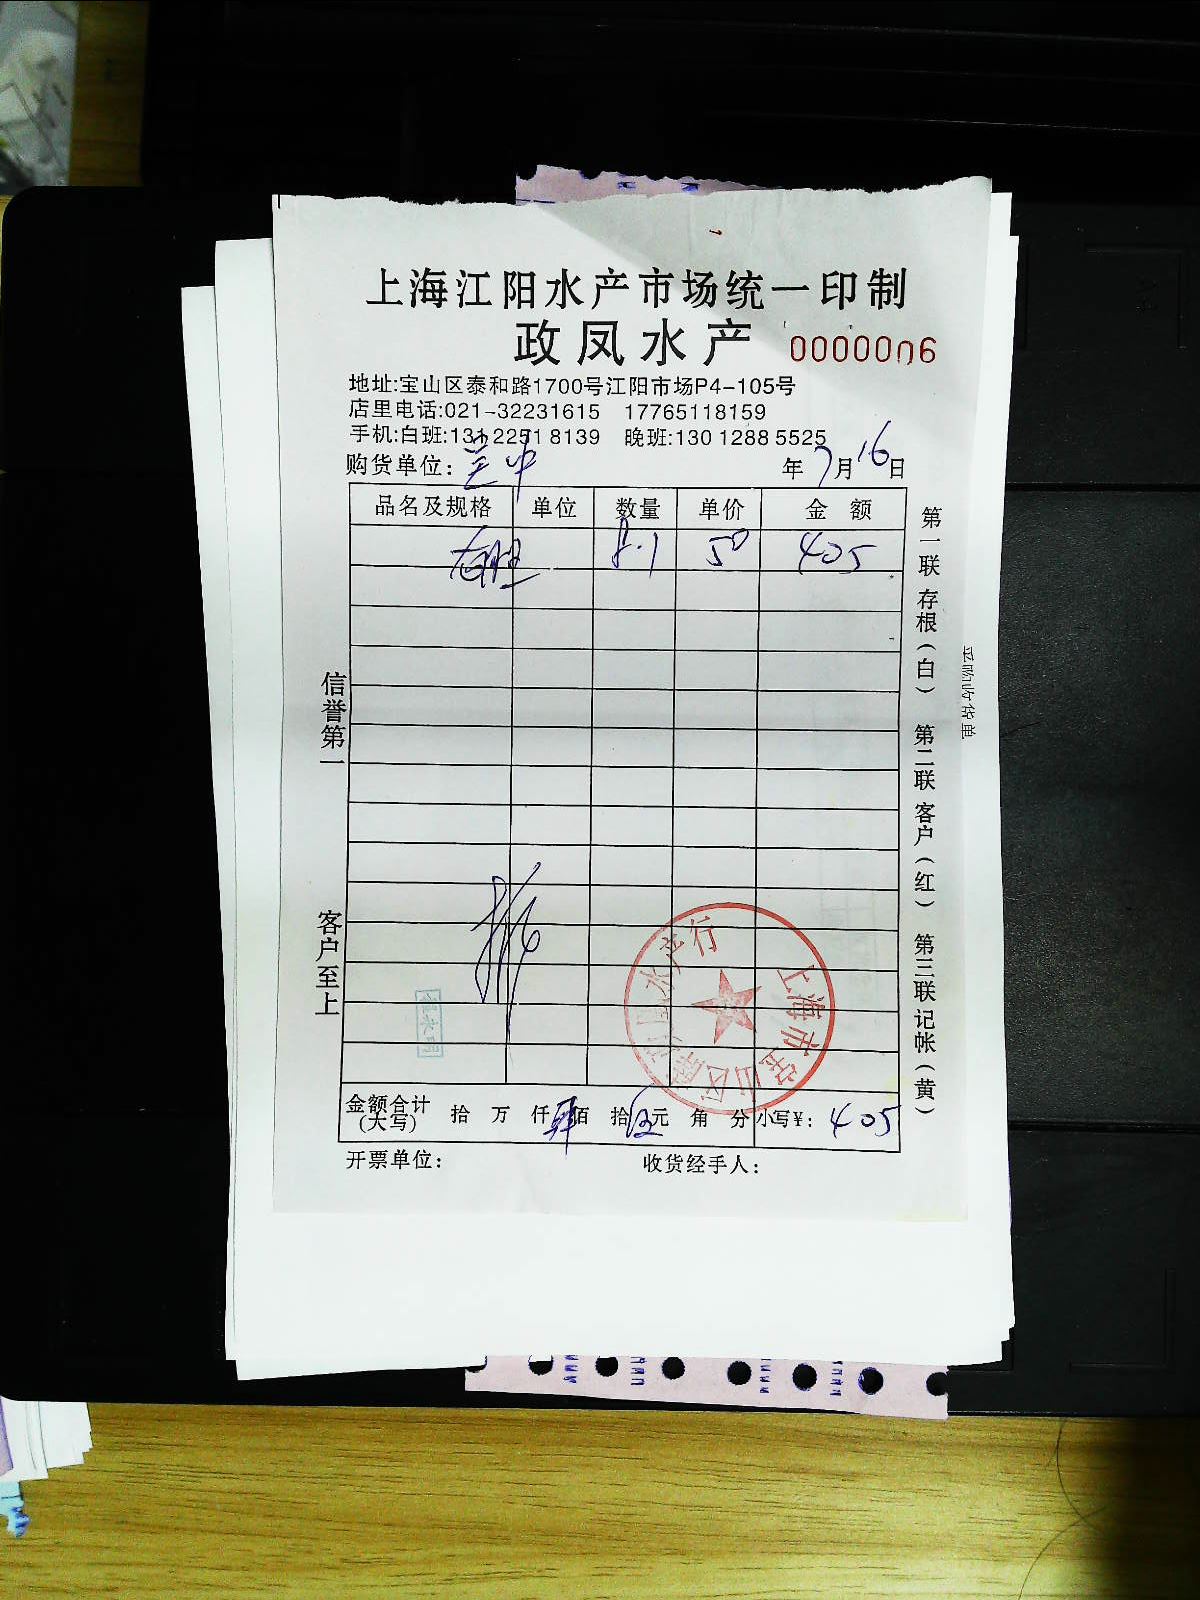 上海江阳水产市场统一印制
政凤水产 0000006
地址:宝山区泰和路1700号江阳市场P4-105号
店里电话:021-32231615 17765118159
手机:白班:131 2251 8139 晚班:130 1288 5525
购货单位: 年 7 月 16 日
品名及规格 单位 数量 单价 金 额
8.1 50 405
信誉第一
客户至上
第一联 存根(白) 第二联 客户(红) 第三联 记帐(黄)
上海市宝山区 水产行
金额合计(大写) 拾 万 仟 肆佰 拾 伍元 角 分 小写¥: 405
开票单位: 收货经手人: